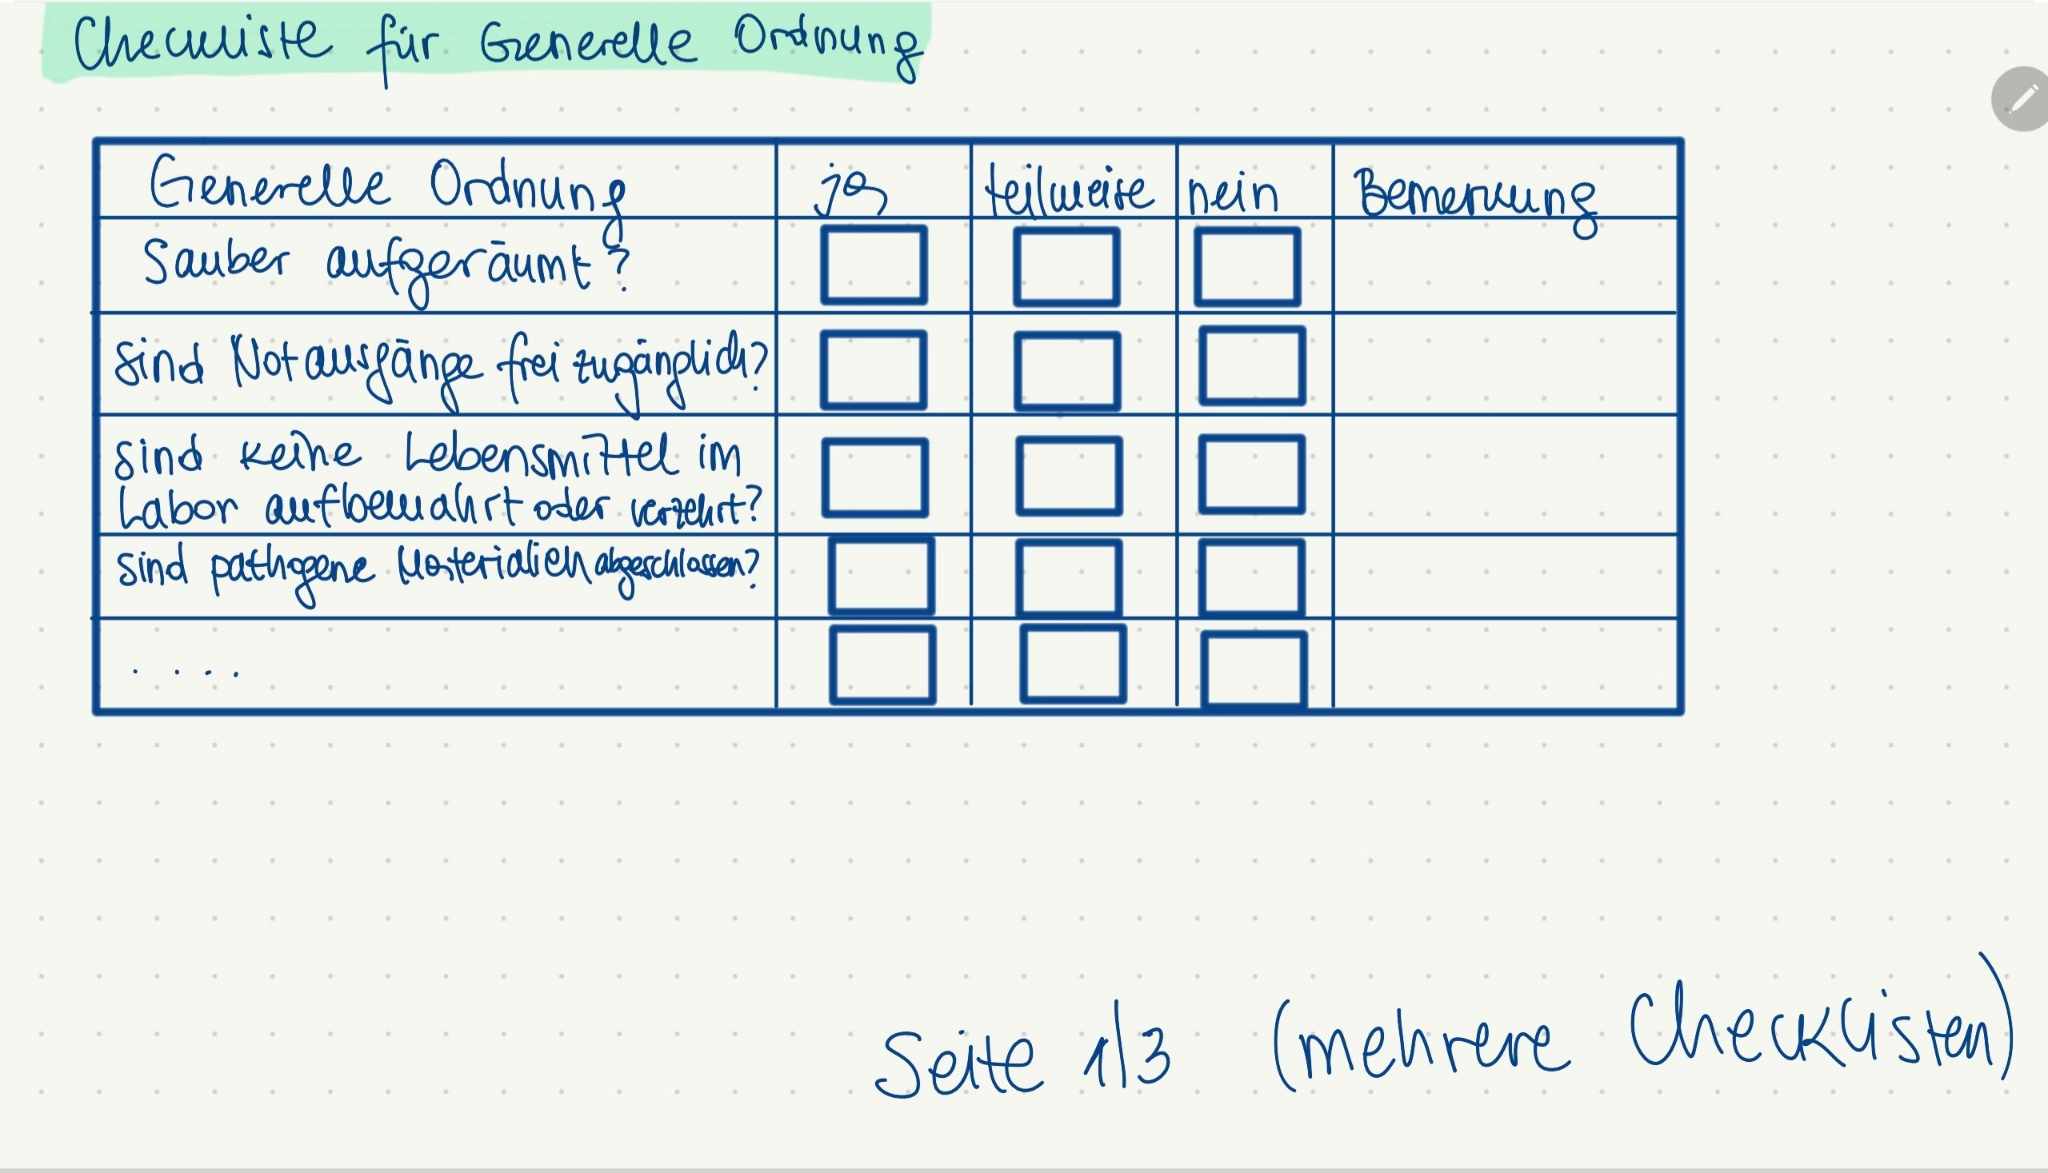 Checkliste für Generelle Ordnung
Generelle Ordnung ja teilweise nein Bemerkung
Sauber aufgeräumt?
Sind Notausgänge frei zugänglich?
Sind keine Lebensmittel im
Labor aufbewahrt oder verzehrt?
Sind pathogene Materialien abgeschlossen?
....
Seite 1/3 (mehrere Checklisten)